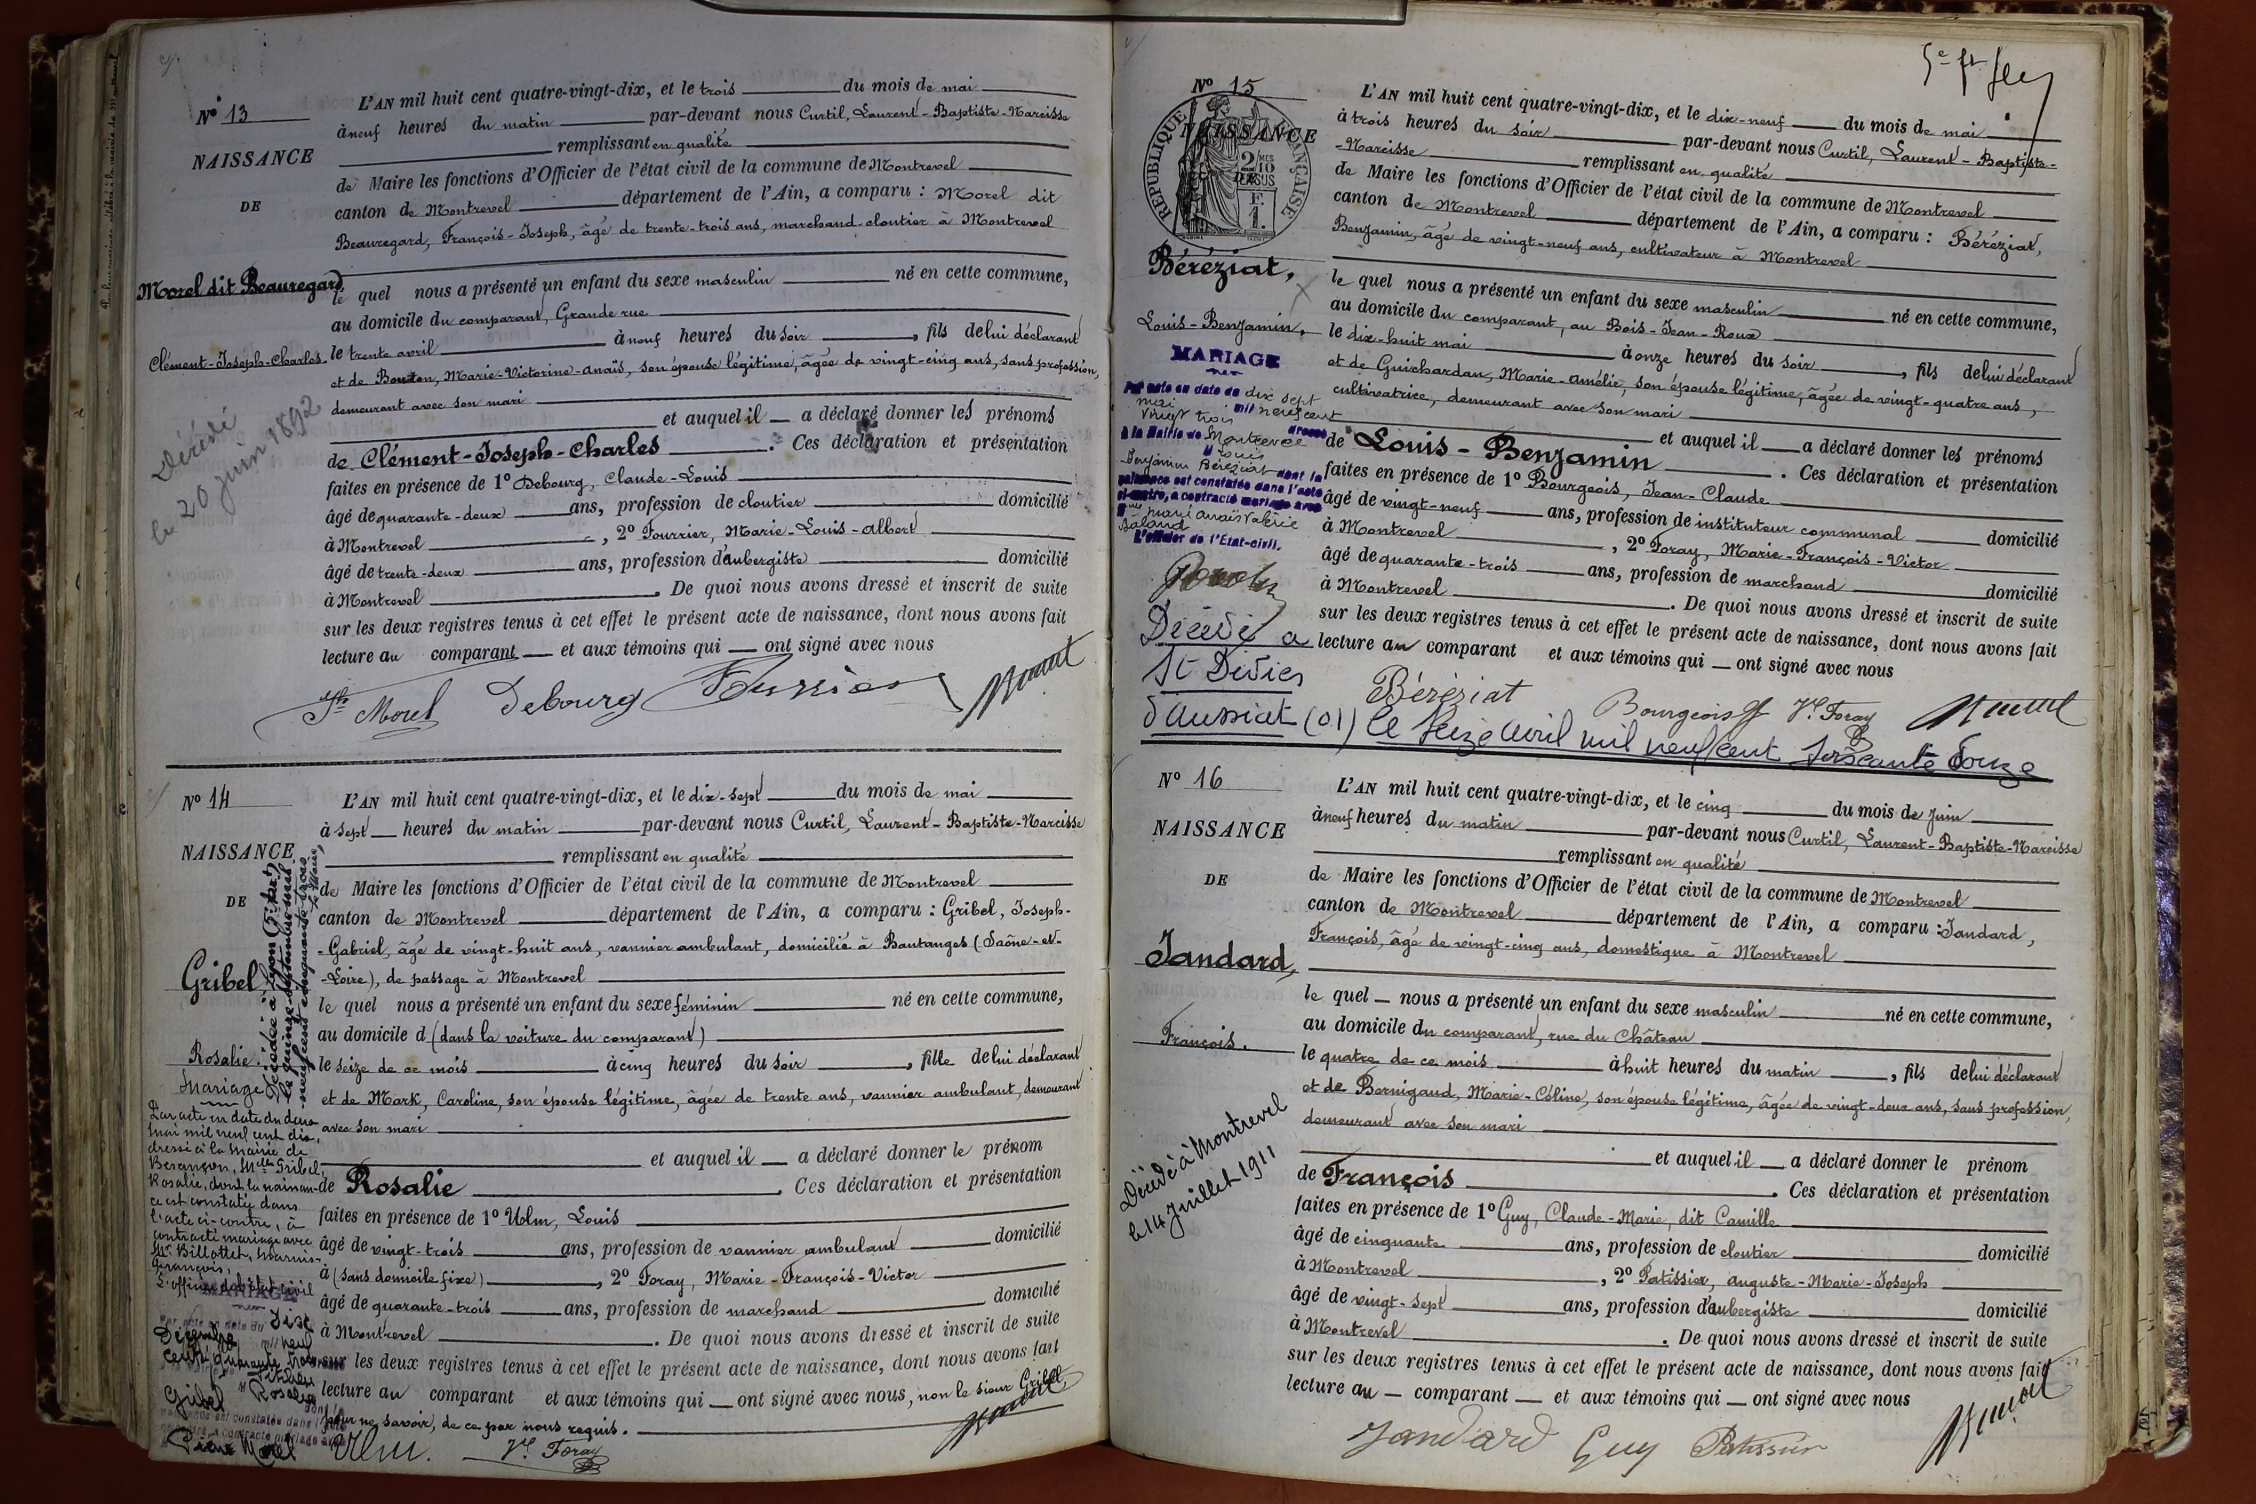 Nº 13
NAISSANCE
DE
Morel dit Beauregard
Clément-Joseph-Charles
Décédé
le 20 juin 1892
L'AN mil huit cent quatre-vingt-dix, et le trois du mois de mai
à neuf heures du matin par-devant nous Curtil, Laurent-Baptiste-Narcisse
remplissant en qualité
de Maire les fonctions d'Officier de l'état civil de la commune de Montrevel
canton de Montrevel département de l'Ain, a comparu : Morel dit
Beauregard, François-Joseph, âgé de trente-trois ans, marchand-cloutier à Montrevel
le quel nous a présenté un enfant du sexe masculin né en cette commune,
au domicile du comparant, Grande rue
le trente avril à neuf heures du soir, fils de lui déclarant
et de Bouton, Marie-Victorine-Anaïs, son épouse légitime, âgée de vingt-cinq ans, sans profession,
demeurant avec son mari
et auquel il a déclaré donner les prénoms
de Clément-Joseph-Charles. Ces déclaration et présentation
faites en présence de 1º Debourg, Claude-Louis
âgé de quarante-deux ans, profession de cloutier domicilié
à Montrevel, 2º Fourrier, Marie-Louis-Albert
âgé de trente-deux ans, profession d'aubergiste domicilié
à Montrevel. De quoi nous avons dressé et inscrit de suite
sur les deux registres tenus à cet effet le présent acte de naissance, dont nous avons fait
lecture au comparant et aux témoins qui ont signé avec nous
Jh Morel Debourg
Nº 14
NAISSANCE
DE
Gribel
Rosalie.
Décédée à Lyon
le quinze septembre mil
neuf cent cinquante trois
le Maire,
Mariage
Par acte en date du deux
mai mil neuf cent dix,
dressé à la Mairie de
Besançon, Melle Gribel,
Rosalie, dont la naissan-
ce est constatée dans
l'acte ci-contre, a
contracté mariage avec
Mr. Billottet,
François.
L'officier de l'état civil
MARIAGE
Par acte en date du dix
Décembre mil neuf
cent quarante trois
Gribel Rosalie
dont la
naissance est constatée dans l'acte
ci-contre, a contracté mariage avec
Morel
L'AN mil huit cent quatre-vingt-dix, et le dix-sept du mois de mai
à sept heures du matin par-devant nous Curtil, Laurent-Baptiste-Narcisse
remplissant en qualité
de Maire les fonctions d'Officier de l'état civil de la commune de Montrevel
canton de Montrevel département de l'Ain, a comparu : Gribel, Joseph-
-Gabriel, âgé de vingt-huit ans, vannier ambulant, domicilié à Bantanges (Saône-et-
-Loire), de passage à Montrevel
le quel nous a présenté un enfant du sexe féminin né en cette commune,
au domicile d (dans la voiture du comparant)
le seize de ce mois à cinq heures du soir, fille de lui déclarant
et de Mark, Caroline, son épouse légitime, âgée de trente ans, vannier ambulant, demeurant
avec son mari
et auquel il a déclaré donner le prénom
de Rosalie. Ces déclaration et présentation
faites en présence de 1º Ulm, Louis
âgé de vingt-trois ans, profession de vannier ambulant domicilié
à (sans domicile fixe), 2º Foray, Marie-François-Victor
âgé de quarante-trois ans, profession de marchand domicilié
à Montrevel. De quoi nous avons dressé et inscrit de suite
sur les deux registres tenus à cet effet le présent acte de naissance, dont nous avons fait
lecture au comparant et aux témoins qui ont signé avec nous, non le sieur Gribel
pour ne savoir, de ce par nous requis.
Ulm. Vr Foray
Nº 15
NAISSANCE
RÉPUBLIQUE FRANÇAISE
2/10 EN SUS
F. 1.
Béréziat,
Louis-Benjamin.
MARIAGE
Par acte en date du dix sept
mai mil neuf cent
vingt trois dressé
à la Mairie de Montrevel
M Louis
Benjamin Béréziat dont la
naissance est constatée dans l'acte
ci-contre, a contracté mariage avec
Melle Marie Anaïs Valérie
L'officier de l'État-civil.
Décédé à
St Didier
d'Aussiat (01) le seize avril mil neuf cent soixante douze
L'AN mil huit cent quatre-vingt-dix, et le dix-neuf du mois de mai
à trois heures du soir par-devant nous Curtil, Laurent-Baptiste-
-Narcisse remplissant en qualité
de Maire les fonctions d'Officier de l'état civil de la commune de Montrevel
canton de Montrevel département de l'Ain, a comparu : Béréziat,
Benjamin, âgé de vingt-neuf ans, cultivateur à Montrevel
le quel nous a présenté un enfant du sexe masculin né en cette commune,
au domicile du comparant, au Bois-Jean-Roux
le dix-huit mai à onze heures du soir, fils de lui déclarant
et de Guichardan, Marie-Amélie, son épouse légitime, âgée de vingt-quatre ans,
cultivatrice, demeurant avec son mari
et auquel il a déclaré donner les prénoms
de Louis-Benjamin. Ces déclaration et présentation
faites en présence de 1º Bourgeois, Jean-Claude
âgé de vingt-neuf ans, profession de instituteur communal domicilié
à Montrevel, 2º Foray, Marie-François-Victor
âgé de quarante-trois ans, profession de marchand domicilié
à Montrevel. De quoi nous avons dressé et inscrit de suite
sur les deux registres tenus à cet effet le présent acte de naissance, dont nous avons fait
lecture au comparant et aux témoins qui ont signé avec nous
Béréziat Bourgeois Vr Foray
Nº 16
NAISSANCE
DE
Jandard,
François.
Décédé à Montrevel
le 14 Juillet 1911
L'AN mil huit cent quatre-vingt-dix, et le cinq du mois de juin
à neuf heures du matin par-devant nous Curtil, Laurent-Baptiste-Narcisse
remplissant en qualité
de Maire les fonctions d'Officier de l'état civil de la commune de Montrevel
canton de Montrevel département de l'Ain, a comparu : Jandard,
François, âgé de vingt-cinq ans, domestique à Montrevel
le quel nous a présenté un enfant du sexe masculin né en cette commune,
au domicile du comparant, rue du Château
le quatre de ce mois à huit heures du matin, fils de lui déclarant
et de Bernigaud, Marie-Céline, son épouse légitime, âgée de vingt-deux ans, sans profession,
demeurant avec son mari
et auquel il a déclaré donner le prénom
de François. Ces déclaration et présentation
faites en présence de 1º Guy, Claude-Marie, dit Camille
âgé de cinquante ans, profession de cloutier domicilié
à Montrevel, 2º Patissier, Auguste-Marie-Joseph
âgé de vingt-sept ans, profession d'aubergiste domicilié
à Montrevel. De quoi nous avons dressé et inscrit de suite
sur les deux registres tenus à cet effet le présent acte de naissance, dont nous avons fait
lecture au comparant et aux témoins qui ont signé avec nous
Jandard Guy Patissier